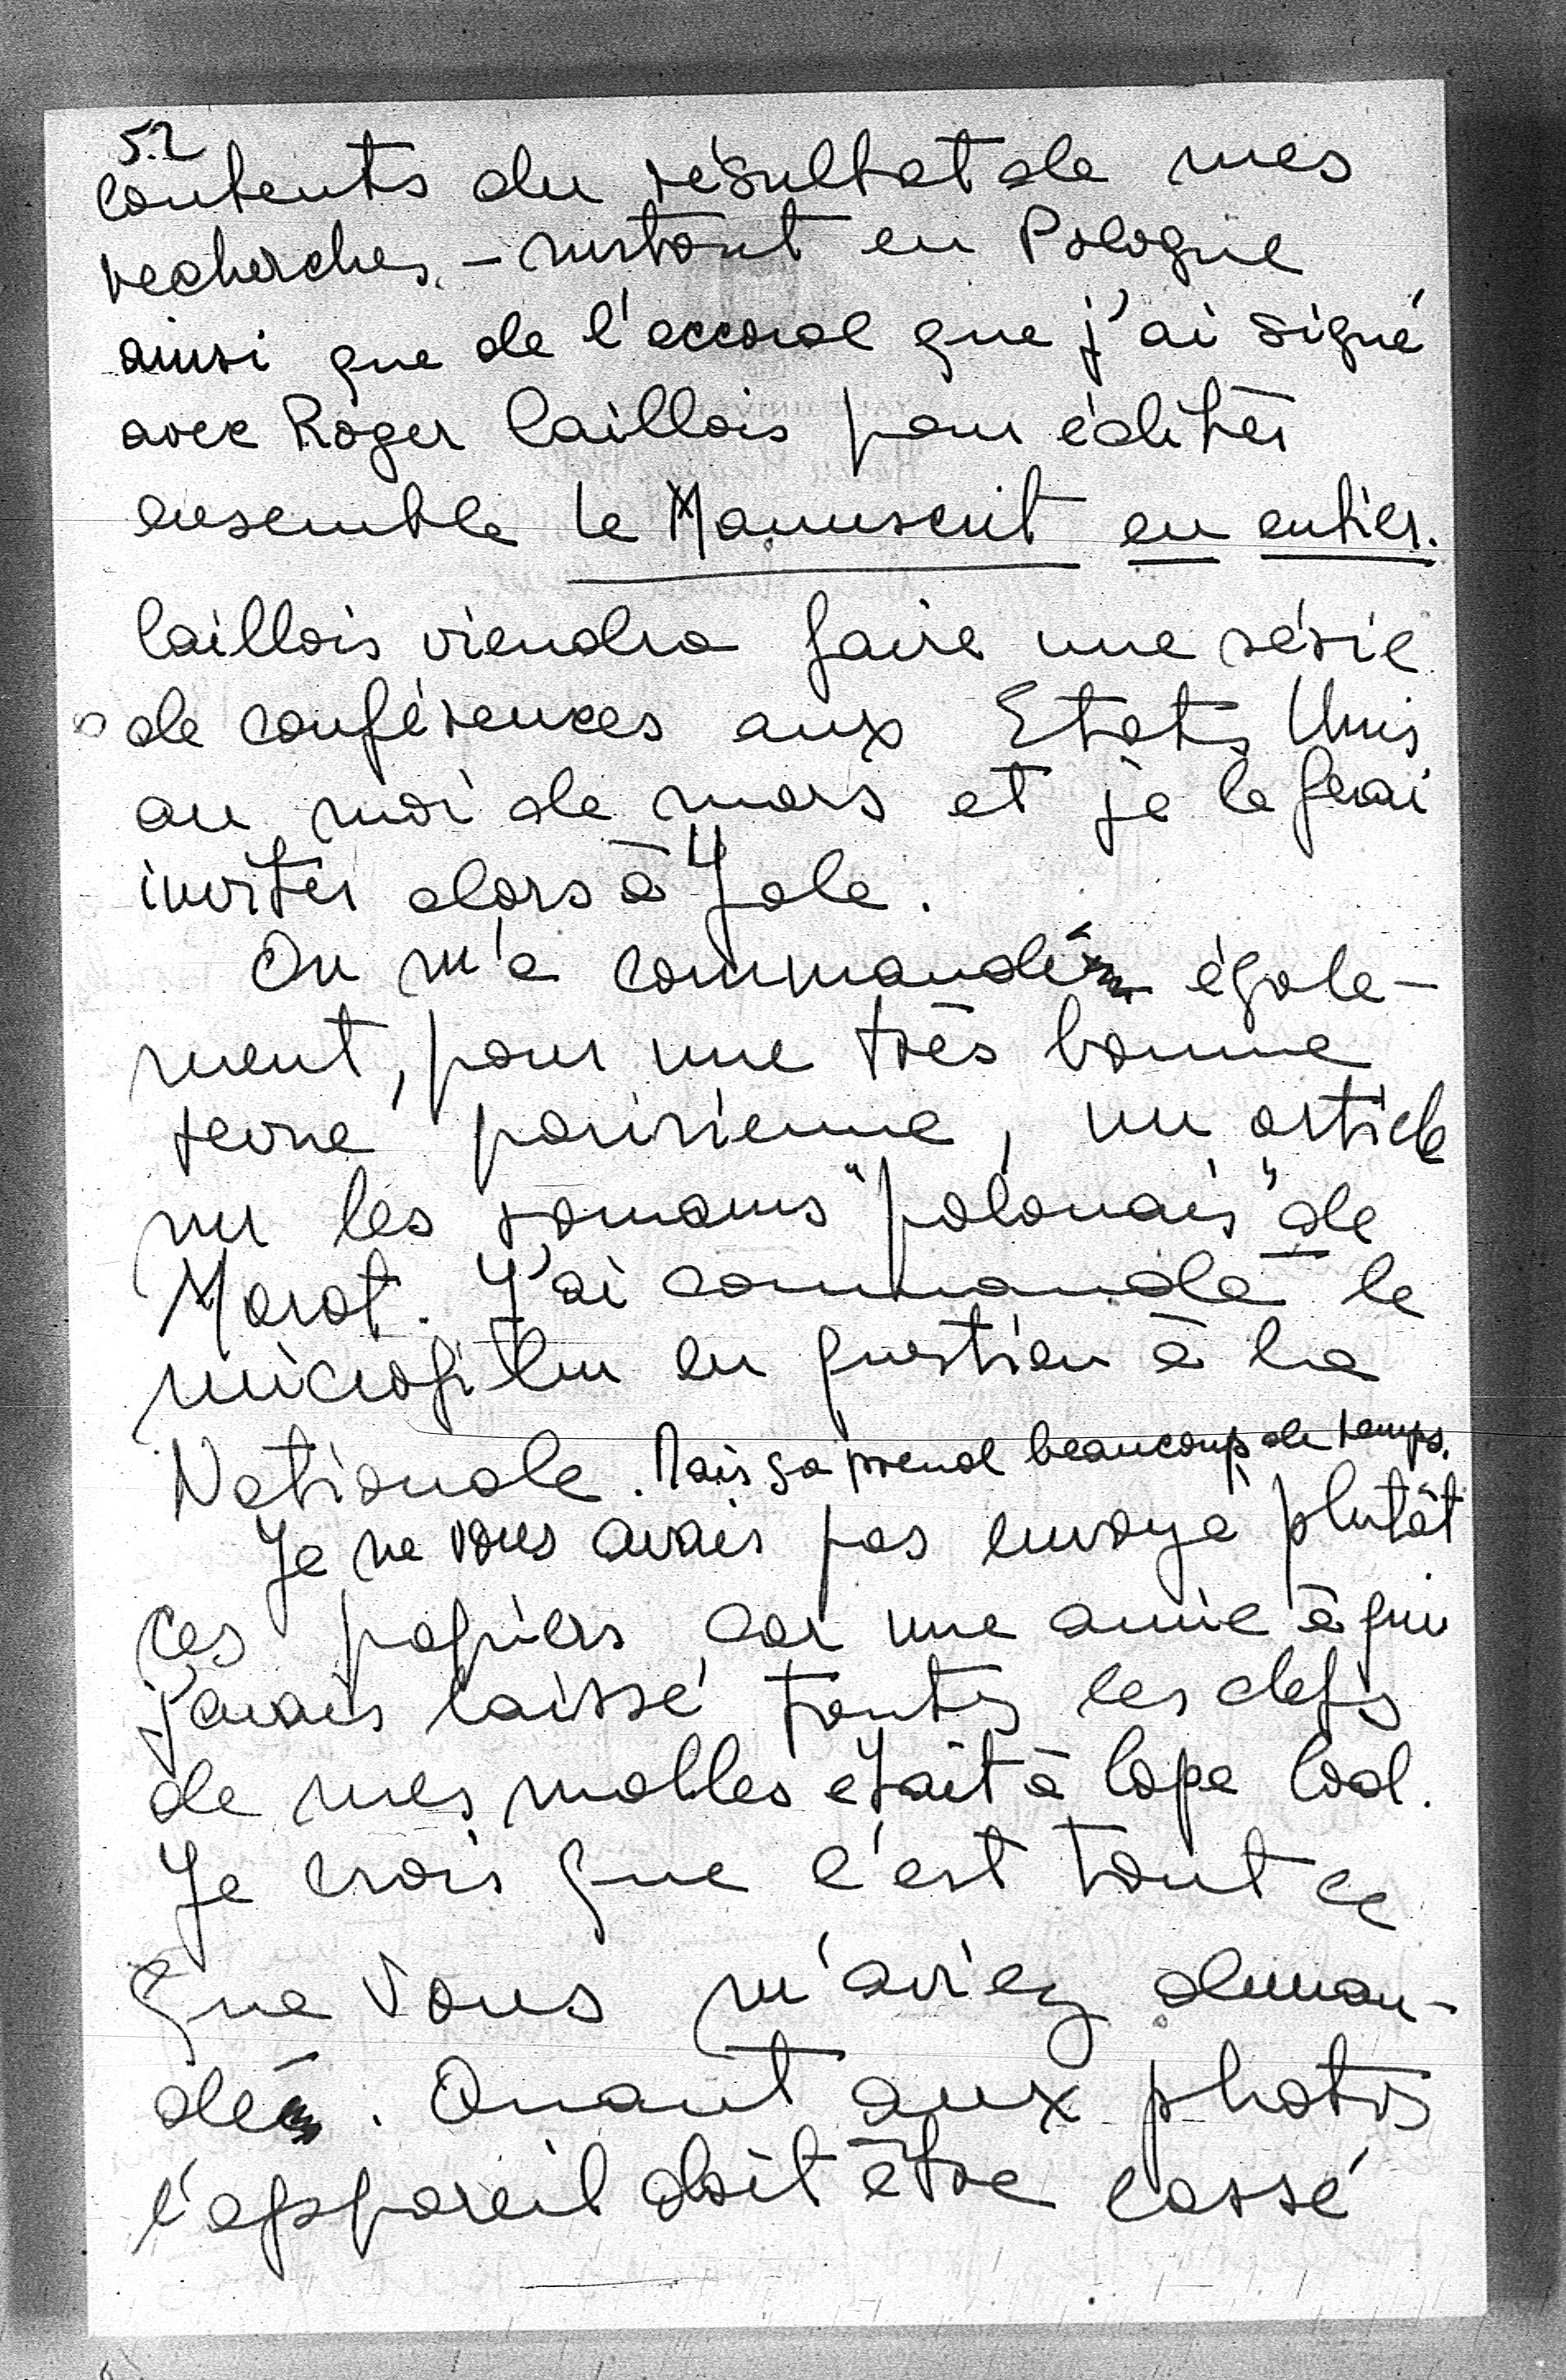 52
contents du résultat de mes
recherches, - surtout en Pologne
ainsi que de l'accord que j'ai signé
avec Roger Caillois pour éditer
ensemble le Manuscrit en entier.
Caillois viendra faire une série
de conférences aux Etats Unis
au moi de mars et je le ferai
inviter alors à Yale.
On m'a commandé égale-
ment, pour une très bonne
revue parisienne, un article
sur les romans "polonais" de
Marat. J'ai commandé le
microfilm en question à la
Nationale. Mais ça prend beaucoup de temps.
Je ne vous avais pas envoyé plutôt
ces papiers car une amie à qui
j'avais laissé toutes les clefs
de mes malles était à Cape Cod.
Je crois que c'est tout ce
que vous m'aviez deman-
dé. Quant aux photos
l'appareil doit être cassé